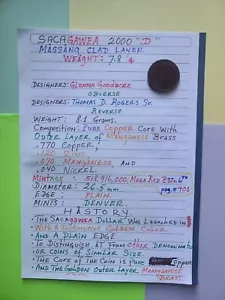 SACAGAWEA 2000 "D"
MISSANG CLAD LAYER
WEIGHT: 7.8 g
DESIGNERS: GLENNA GOODACRE
OBVERSE
DESIGNERS: THOMAS D. ROGERS SR.
REVERSE
WEIGHT: 8.1 GRAMS.
COMPOSITION: PURE COPPER CORE WITH
OUTER LAYER OF MANGANESE BRASS
.770 COPPER,
.120
.070 MANGANESE, AND
.040 NICKEL.
MINTAGE: 518,916,000
DIAMETER: 26.5 mm pg #701
EDGE: PLAIN.
MINTS: DENVER
HISTORY
• THE SACAGAWEA DOLLAR WAS LAUNCHED IN
WITH A DISTINCTIVE GOLDEN COLOR
• AND A PLAIN EDGE
• TO DISTINGUISH IT FROM OTHER DENOMINATIONS
• OR COINS OF SIMILAR SIZE
• THE CORE OF THE COIN IS PURE COPPER
• AND THE GOLDEN OUTER LAYER MANGANESE
BRASS